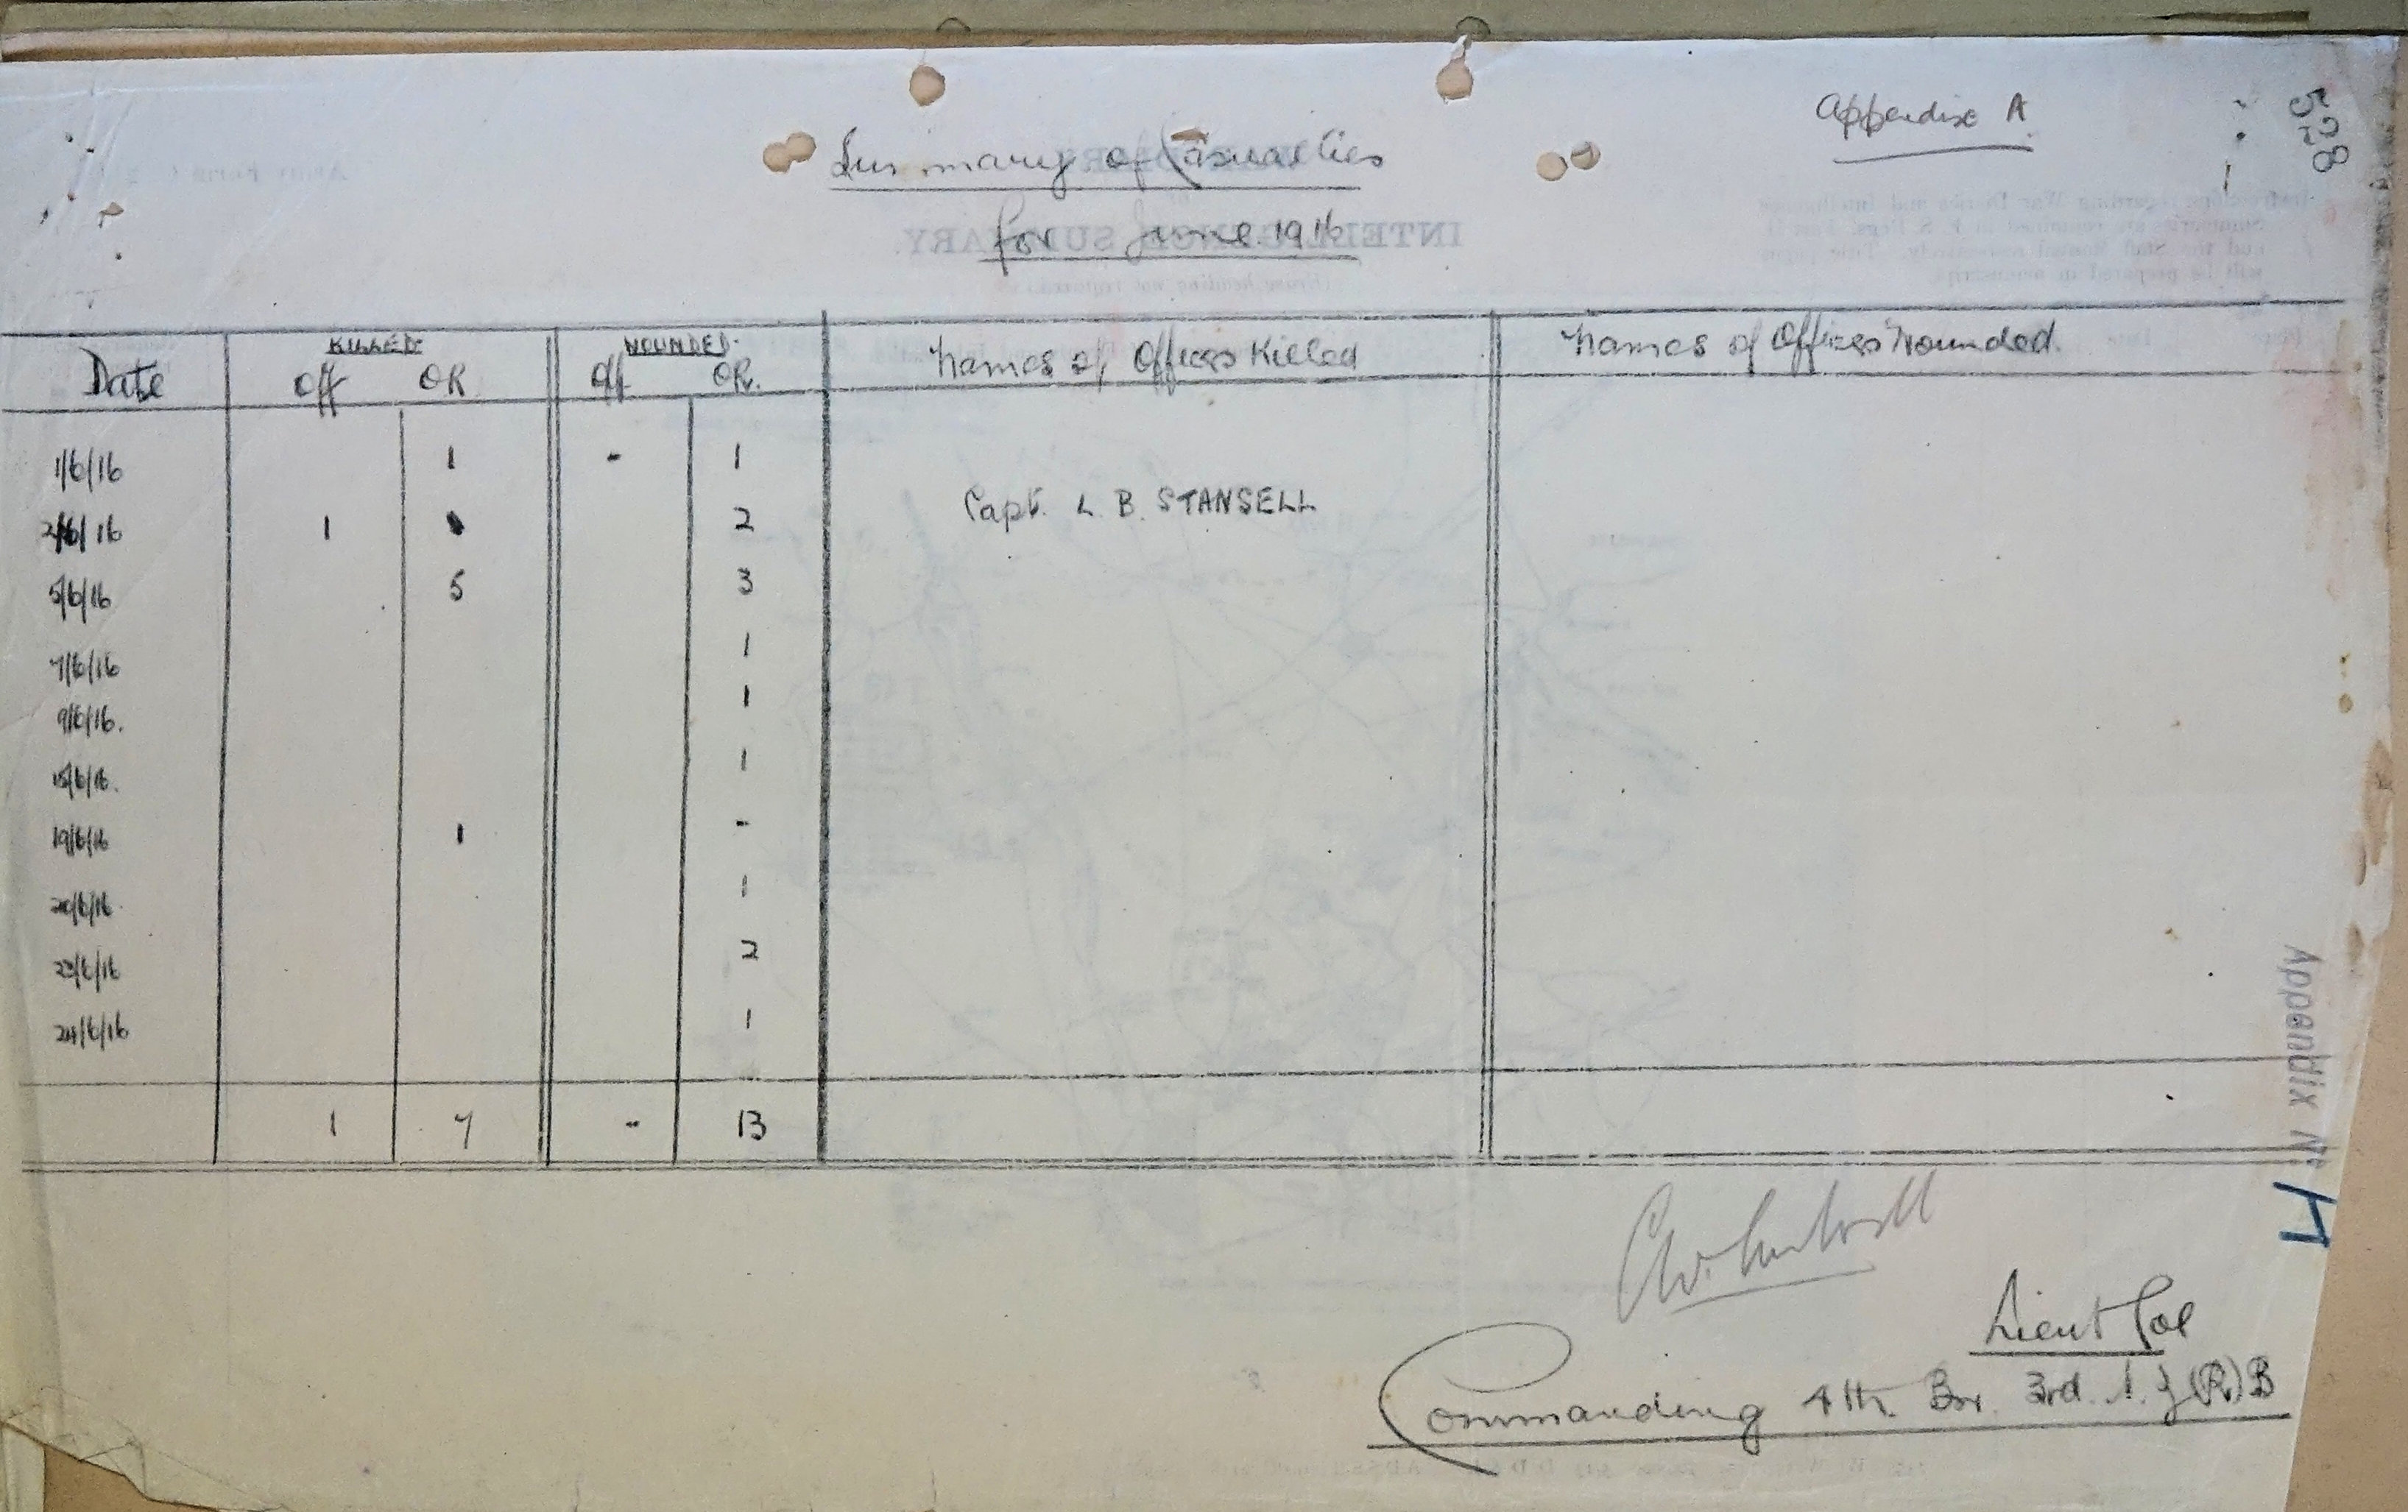 Appendix A
528
Summary of Casualties
for June 1916
Date KILLED WOUNDED Names of Officers Killed Names of Officers Wounded.
Off OR Off OR.
1/6/16 1 - 1
2/6/16 1 2 Capt. L. B. STANSELL
5/6/16 5 3
7/6/16 1
9/6/16. 1
15/6/16. 1
19/6/16 1 -
20/6/16 1
23/6/16 2
24/6/16 1
1 7 - 13
Appendix No
Lieut Col
Commanding 4th. Bn. 3rd. N.Z (R) B